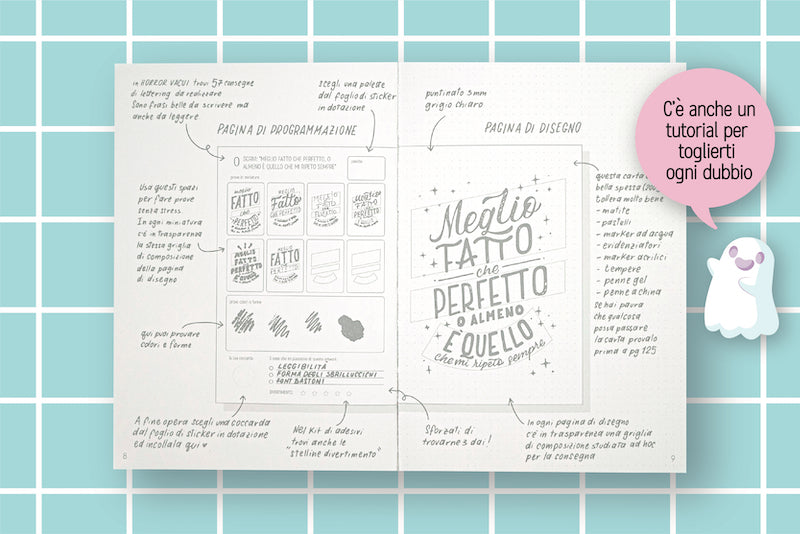 in HORROR VACUI trovi 57 consegne
di lettering da realizzare
Sono frasi belle da scrivere ma
anche da leggere.
Scegli una palette
dal foglio di sticker
in dotazione
PAGINA DI PROGRAMMAZIONE
0 SCRIVI: "MEGLIO FATTO CHE PERFETTO, O
ALMENO È QUELLO CHE MI RIPETO SEMPRE"
palette:
prove in miniatura
Usa questi spazi
per fare prove
senza stress.
In ogni miniatura
c'è in trasparenza
la stessa griglia
di composizione
della pagina
di disegno
MEGLIO
FATTO
che
PERFETTO
prove colori e forme
qui puoi provare
colori e forme
la tua coccarda
3 cose che mi piacciono di questo artwork:
LEGGIBILITÀ
FORMA DEGLI SBRILLUSSICHI
FONT BASTONI
DIVERTIMENTO
A fine opera scegli una coccarda
dal foglio di sticker in dotazione
ed incollala qui ♥
Nel Kit di adesivi
trovi anche le
"stelline divertimento"
8
puntinato 5mm
grigio chiaro
PAGINA DI DISEGNO
Meglio
FATTO
che
PERFETTO
O ALMENO
È QUELLO
che mi ripeto sempre
questa carta
bella spessa
tollera molto bene
- matite
- pastelli
- marker ad acqua
- evidenziatori
- marker acrilici
- tempere
- penne gel
- penne a china
se hai paura
che qualcosa
possa passare
la carta provalo
prima a pg 125
Sforzati di
trovarne 3 dai!
In ogni pagina di disegno
c'è in trasparenza una griglia
di composizione studiata ad hoc
per la consegna
9
C'è anche un
tutorial per
toglierti
ogni dubbio